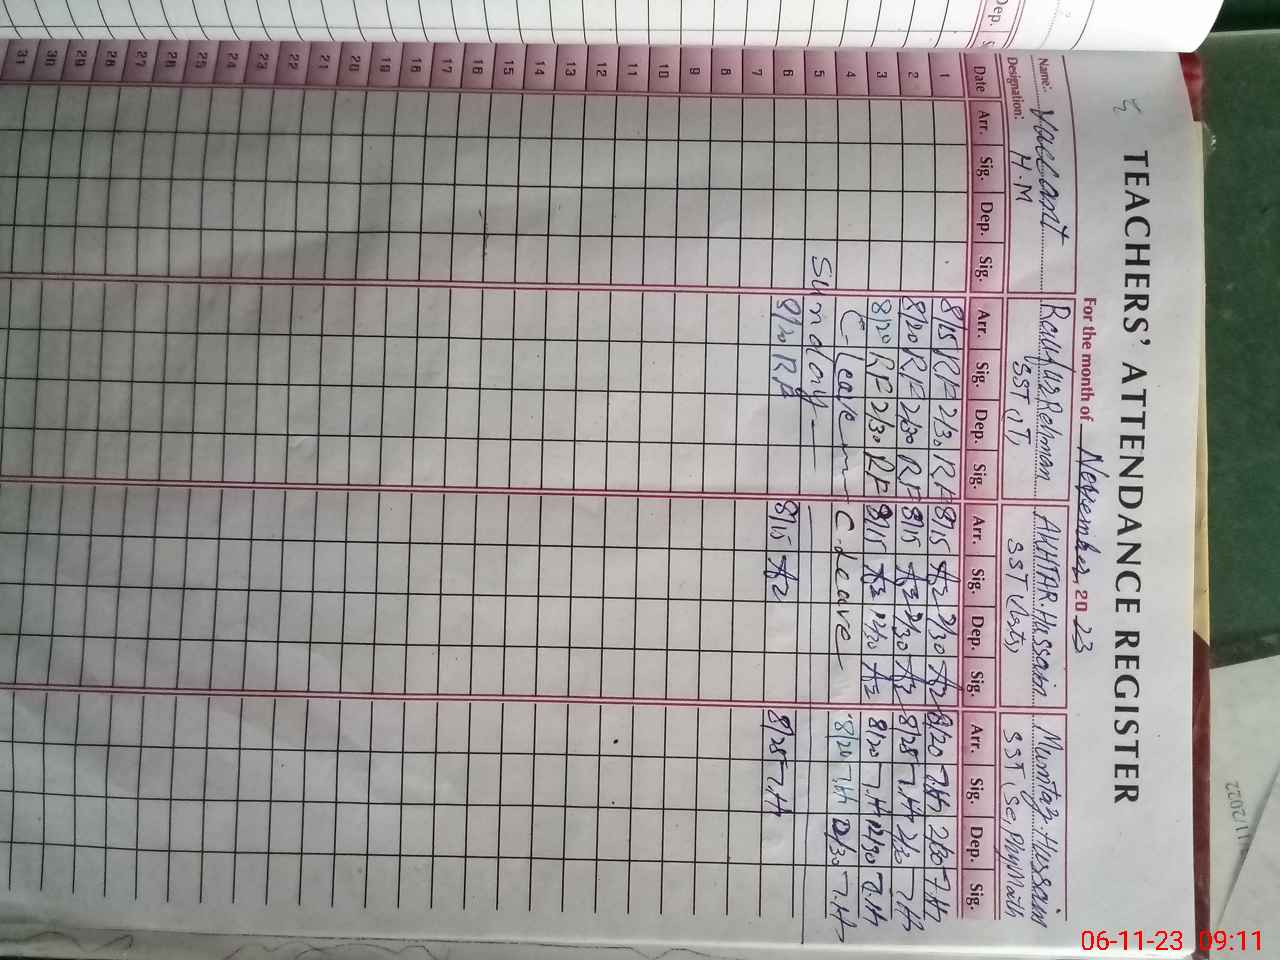 TEACHERS' ATTENDANCE REGISTER
For the month of November 2023
Name: Vaccant
Designation: H.M
Rehman
SST (IT)
AKHTAR Hussain
SST
Mumtaz Hussain
SST (Sc, Phy Math
Date Arr. Sig. Dep. Sig. Arr. Sig. Dep. Sig. Arr. Sig. Dep. Sig. Arr. Sig. Dep. Sig.
1 8/15 RR 2/30 RR 8/15 Az 2/30 Az 8/20 T.H 2/30 T.H
2 8/20 RR 2/30 RR 8/15 Az 2/30 Az 8/25 T.H T.H
3 8/20 RR 2/30 RR 8/15 Az 12/30 Az 8/20 T.H 12/30 T.H
4 C-leave C-Leave 8/20 T.H 12/30 T.H
5 Sunday
6 8/20 RR 8/15 Az 8/25 T.H
7
8
9
10
11
12
13
14
15
16
17
18
19
20
21
22
23
24
25
26
27
28
29
30
31
Dep.
11/2022
06-11-23 09:11